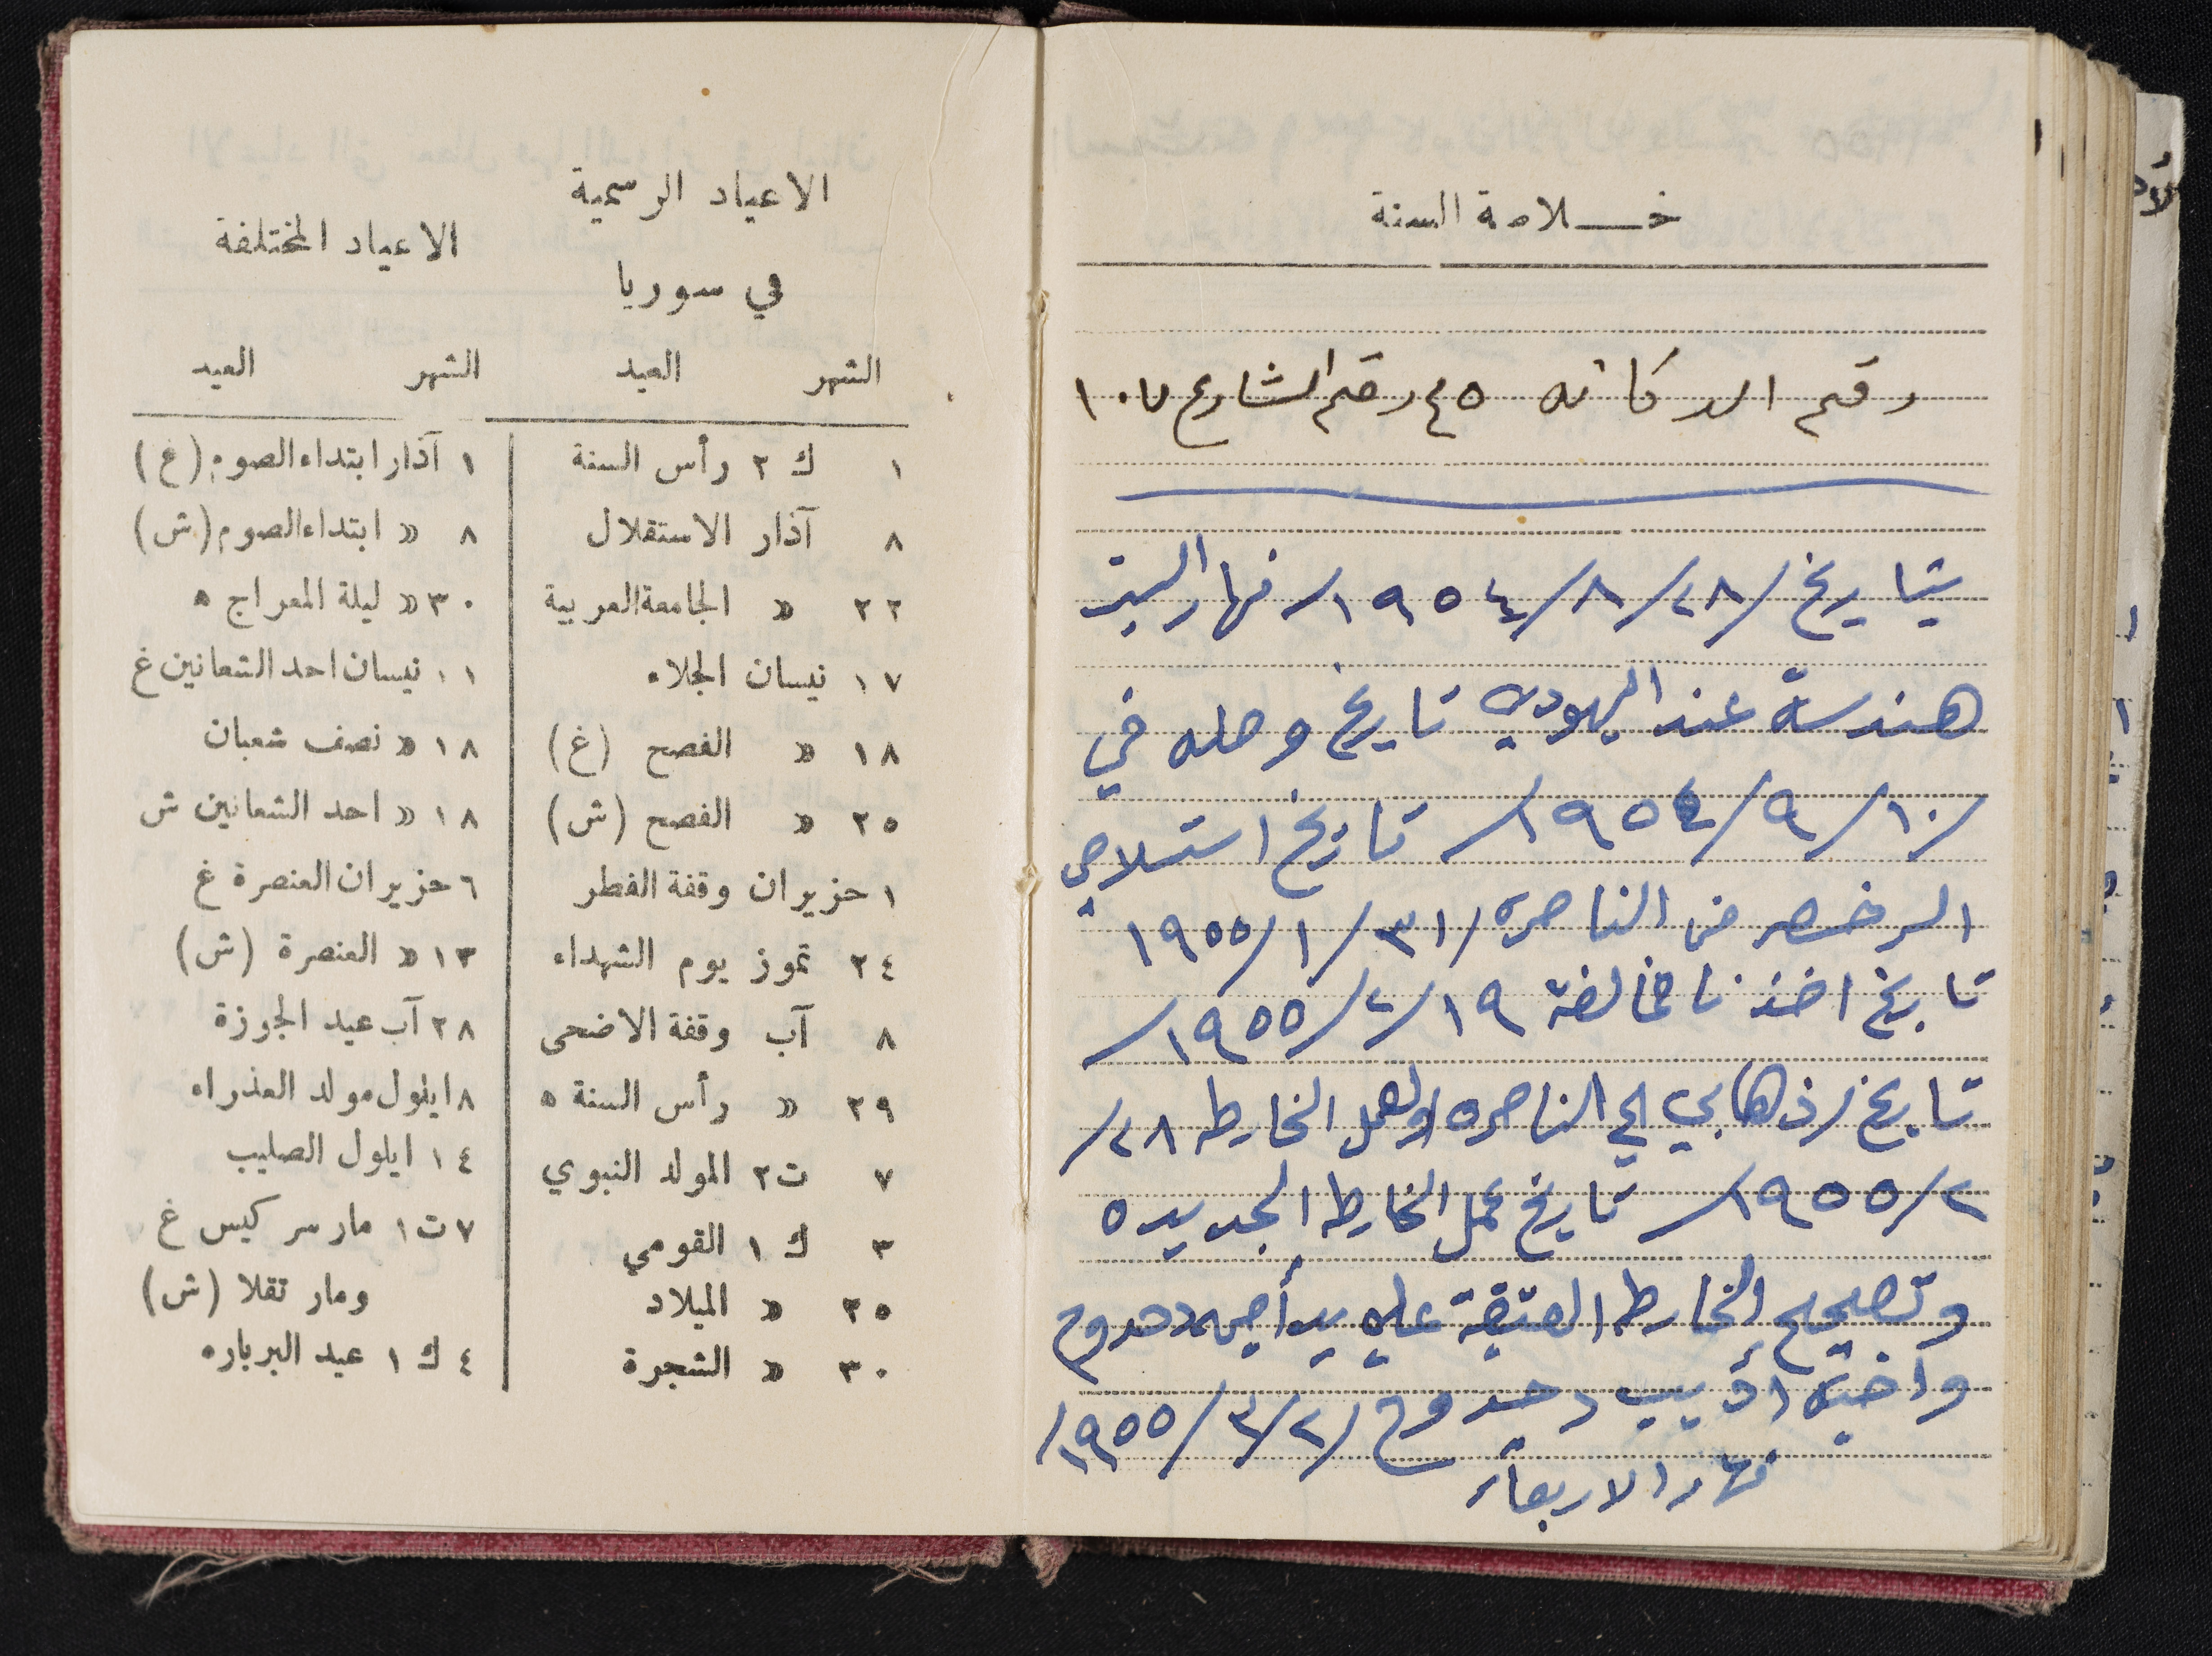 خـــلاصة السنة
رقم الدكانه ٤٥ رقم الشارع ١٠٧
بتاريخ /٢٨/٨/١٩٥٤/ نهار السبت
هندسة عند اليهودي تاريخ وصله في
/١٠/٩/١٩٥٤/ تاريخ استلامي
الرخصه من الناصره /٣١/١/١٩٥٥
تاريخ اخذنا مخالفة ١٩/٢/١٩٥٥/
تاريخ ذهابي الى الناصره لعمل الخارطه ٢٨/
٢/١٩٥٥/ تاريخ عمل الخارطه الجديده
وتصحيح الخارطه العتيقة على يد دحدوح
واخيه اديب دحدوح /٢/٣/١٩٥٥/
نهار الاربعاء
الاعياد الرسمية
في سوريا
الشهر العيد
١ ك ٢ رأس السنة
٨ آذار الاستقلال
٢٢ » الجامعة العربية
١٧ نيسان الجلاء
١٨ » الفصح (غ)
٢٥ » الفصح (ش)
١ حزيران وقفة الفطر
٢٤ تموز يوم الشهداء
٨ آب وقفة الاضحى
٢٩ » رأس السنة ه
٧ ت٢ المولد النبوي
٣ ك ١ القومي
٢٥ » الميلاد
٣٠ » الشجرة
الاعياد المختلفة
الشهر العيد
١ آذار ابتداء الصوم (غ)
٨ » ابتداء الصوم (ش)
٣٠ » ليلة المعراج ه
١١ نيسان احد الشعانين غ
١٨ » نصف شعبان
١٨ » احد الشعانين ش
٦ حزيران العنصرة غ
١٣ » العنصرة (ش)
٢٨ آب عيد الجوزة
٨ ايلول مولد العذراء
١٤ ايلول الصليب
٧ ت١ مار سركيس غ
ومار تقلا (ش)
٤ ك ١ عيد البرباره